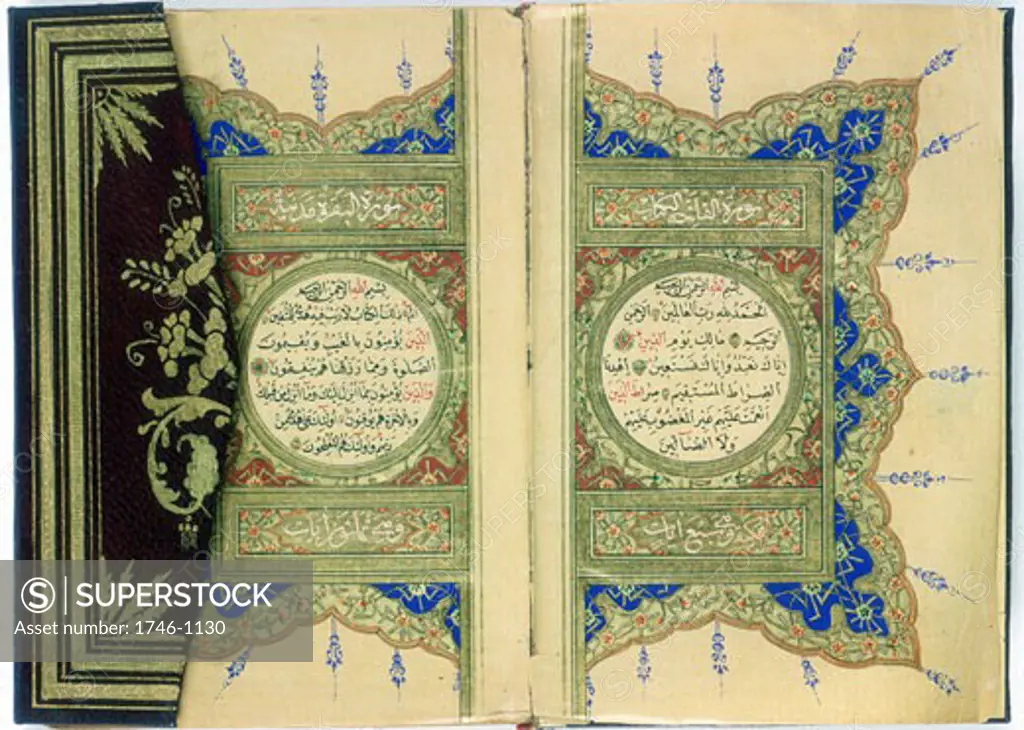 سورة الفاتحة الكتاب
بسم الله الرحمن الرحيم
الحمد لله رب العالمين الرحمن
الرحيم مالك يوم الدين
إياك نعبد وإياك نستعين اهدنا
الصراط المستقيم صراط الذين
أنعمت عليهم غير المغضوب عليهم
ولا الضالين
مكية وهي سبع آيات
سورة البقرة مدنية
بسم الله الرحمن الرحيم
الم ذلك الكتاب لا ريب فيه هدى للمتقين
الذين يؤمنون بالغيب ويقيمون
الصلوة ومما رزقناهم ينفقون
والذين يؤمنون بما أنزل إليك وما أنزل من قبلك
وبالآخرة هم يوقنون أولئك على هدى من
ربهم وأولئك هم المفلحون
SUPERSTOCK
Asset number: 1746-1130